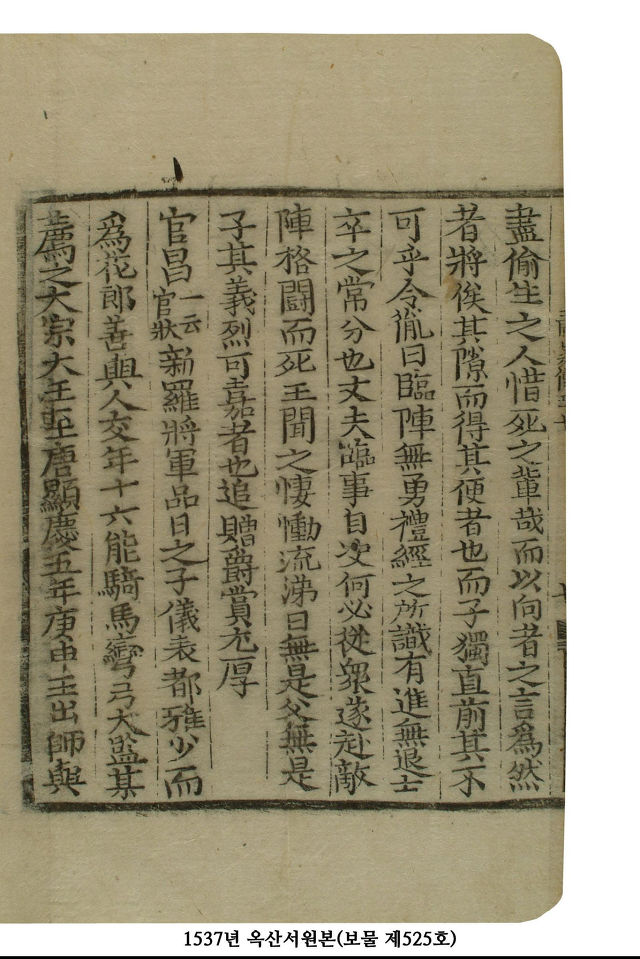 盡偷生之人惜死之輩哉而以向者之言爲然
者將俟其隙而得其便者也而子獨直前其不
可乎令胤曰臨陣無勇禮經之所識有進無退士
卒之常分也丈夫臨事自决何必從衆遂赴敵
陣格鬪而死王聞之悽慟流涕曰無是父無是
子其義烈可嘉者也追贈爵賞尤厚
官昌一云官狀新羅將軍品日之子儀表都雅少而
爲花郎善與人交年十六能騎馬彎弓大監某
薦之太宗大王至唐顯慶五年庚申王出師與
1537년 옥산서원본(보물 제525호)